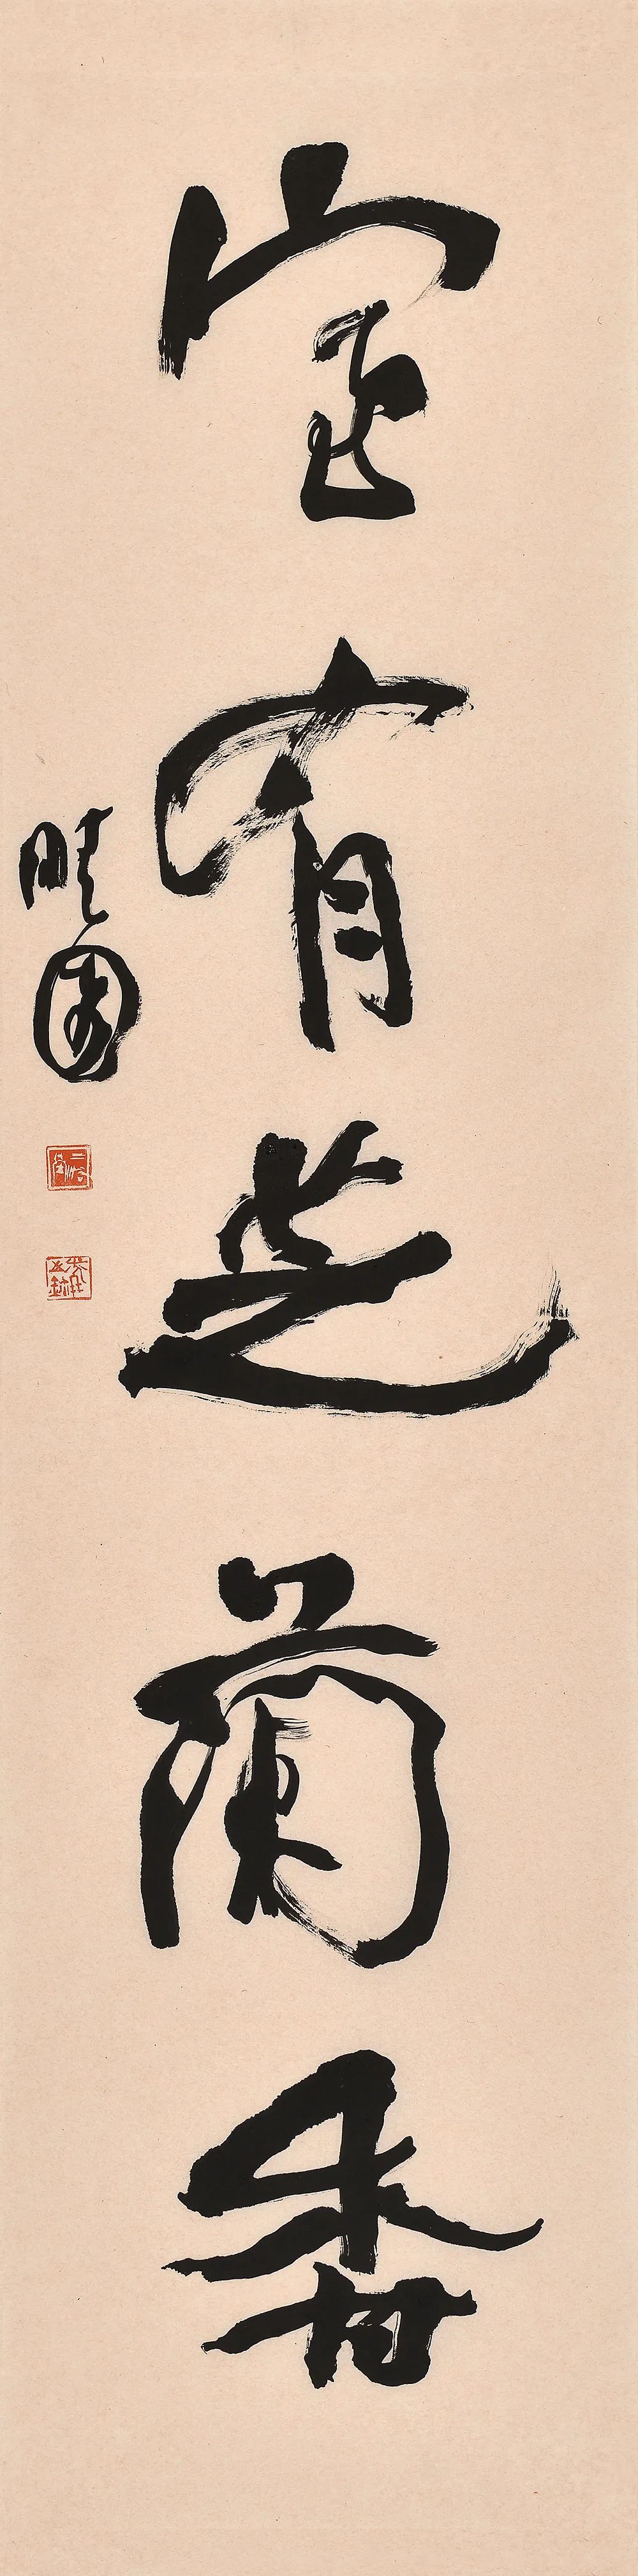 室有芝蘭香
晴園